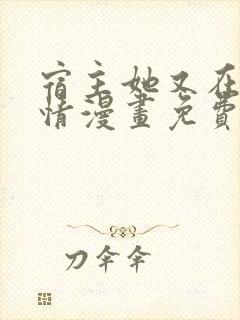 宿主她又在
情漫畫免費
刀傘傘